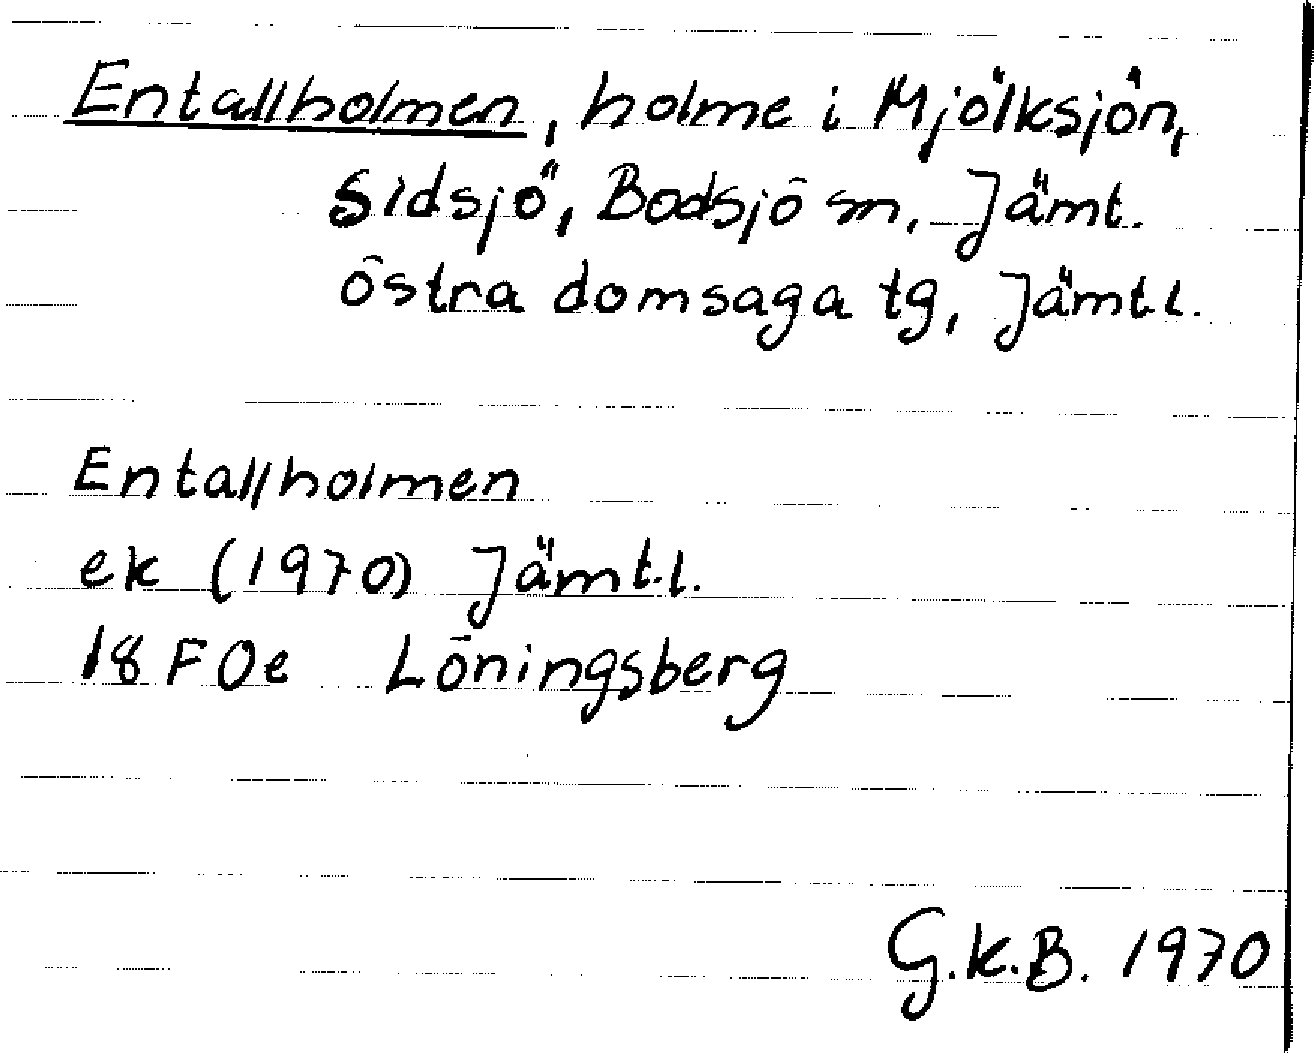 Entallholmen, holme i Mjölksjön,
Sidsjö, Bodsjö sn, Jämt.
östra domsaga tg, Jämt.l.
Entallholmen
ek (1970) Jämt.l.
18F0e Löningsberg
G.K.B. 1970